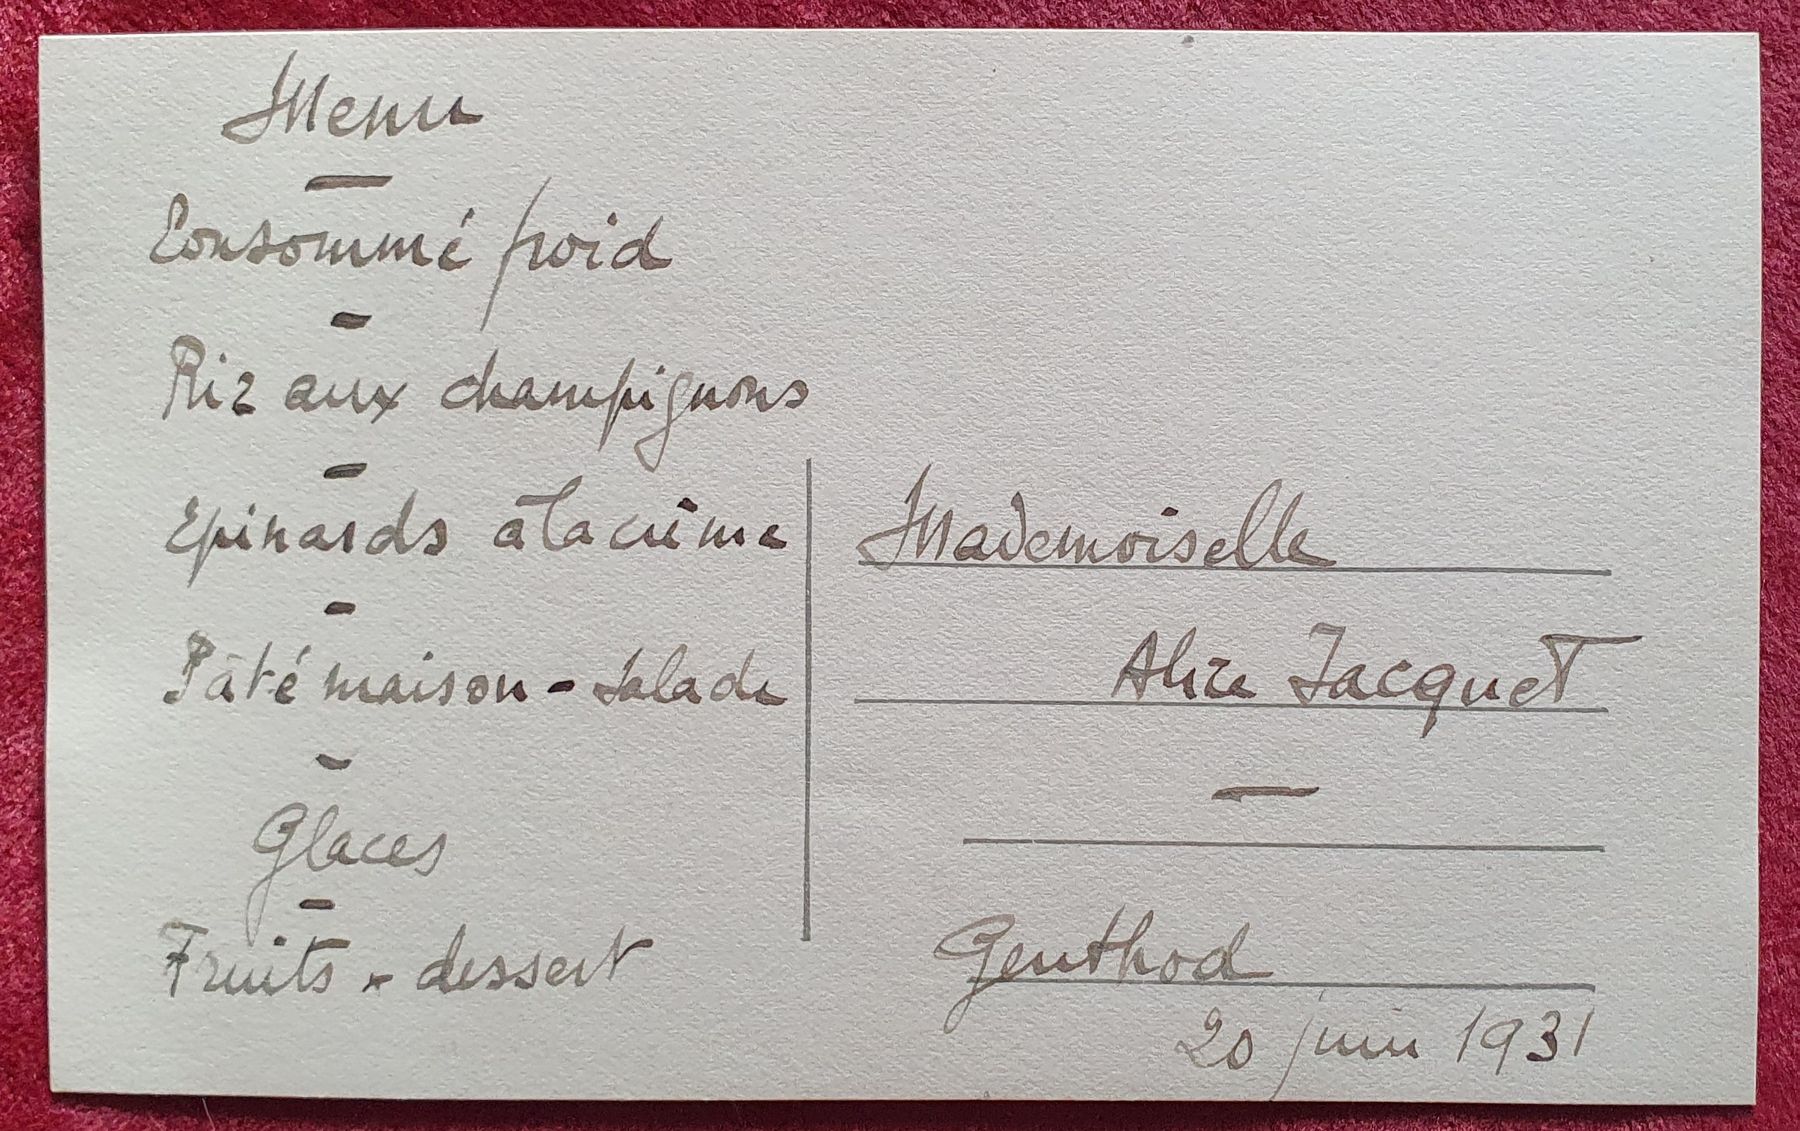 Menu
Consommé froid
Riz aux champignons
Epinards à la crème
Pâté maison - salade
Glaces
Fruits - dessert
Mademoiselle
Alice Jacquet
Genthod
20 juin 1931